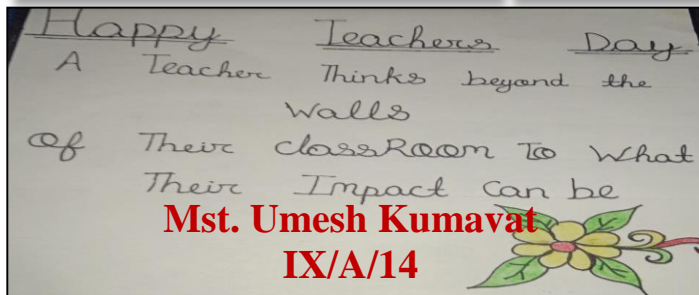 Happy Teachers Day
A Teacher Thinks beyond the
Walls
Of Their classRoom To What
Their Impact can be
Mst. Umesh Kumavat
IX/A/14